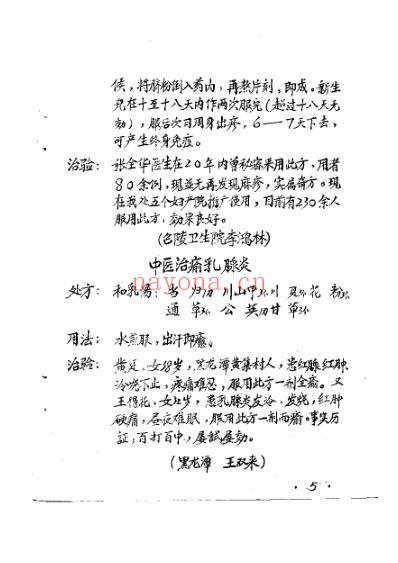 候，将脐粉倒入药内，再熬片刻，即成。新生
儿在十至十八天内作两次服完（超过十八天无
効），服后次日周身出疹，6—7天下去，
可产生终身免疫。
治验：张全华医生在20年内曾秘密采用此方，用者
80余例，现並无再发现麻疹，实属奇方。现
在我处五个妇产院推广使用，目前有230余人
服用此方，効果良好。
（召陵卫生院李鸿林）
nayona.cn
中医治痛乳腺炎
处方：和乳汤：当 归 川山甲 贝 花 粉
通 草 公 英 甘 草
用法：水煎服，出汗即癒。
治验：黄 女18岁，黑龙潭黄集村人，患红腺红肿
冷 不止，疼痛难忍，服用此方一剂全癒。又
王得花，女22岁，患乳腺炎发冷、发烧，红肿
硬痛，昼夜难眠，服用此方一剂而癒。事实历
证，百打百中，屡试屡効。
（黑龙潭 王双来）
· 5 ·